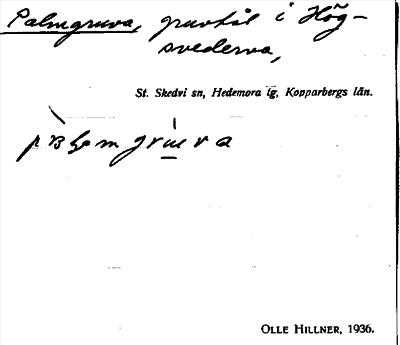 Palmgruva, gruvhål i Hög-
svederna,
St. Skedvi sn, Hedemora tg, Kopparbergs län.
OLLE HILLNER, 1936.